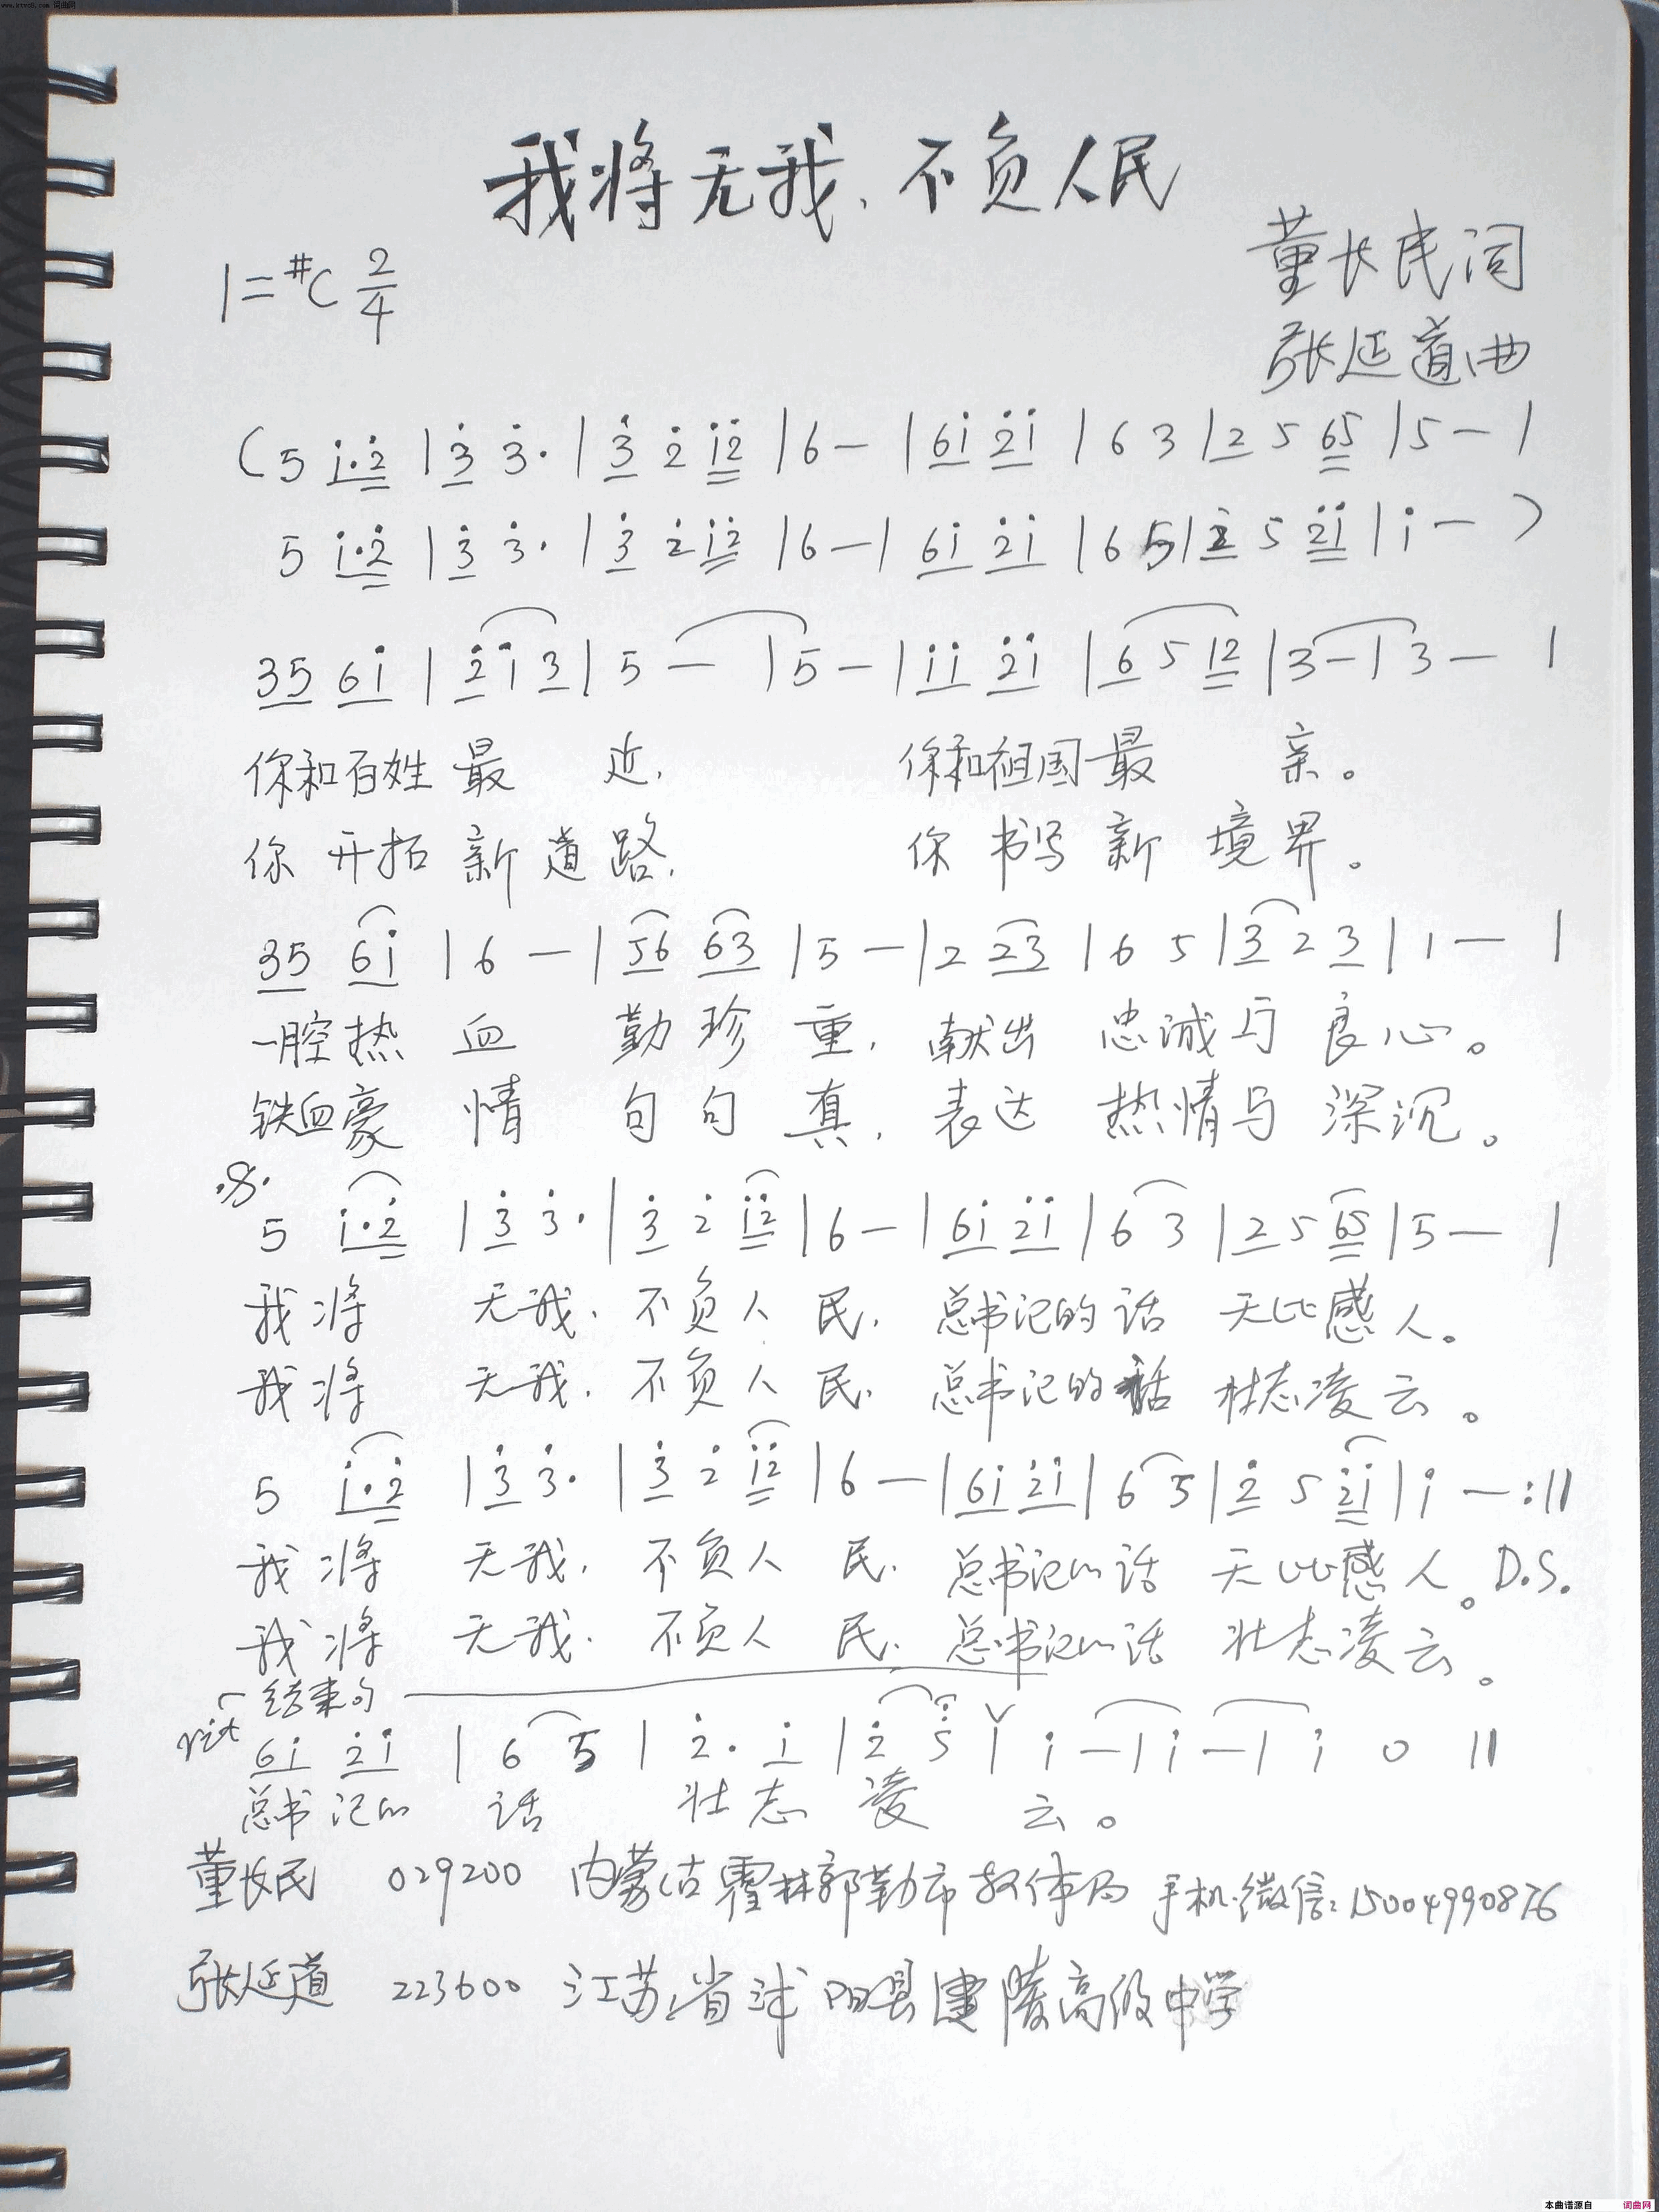 www.ktvc8.com 词曲网
我将无我、不负人民
董长民词
1=#C 2/4
张延道曲
(5 i·2̇ | 3̇ 3̇· | 3̇ 2̇ i2̇ | 6 — | 6i 2̇i | 6 3 | 2 5 65 | 5 — |
5 i·2̇ | 3̇ 3̇· | 3̇ 2̇ i2̇ | 6 — | 6i 2̇i | 6 5 | 2̇ 5 2̇i | i — )
35 6i | 2̇ i 3 | 5 — | 5 — | ii 2̇i | 6 5 12 | 3 — | 3 — |
你和百姓 最 近, 你和祖国最 亲。
你 开拓 新 道 路, 你 书写 新 境 界。
35 6i | 6 — | 56 63 | 5 — | 2 23 | 6 5 | 3 2 3 | 1 — |
一腔热 血 勤 珍 重, 献出 忠诚与 良 心。
铁血豪 情 句 句 真, 表达 热情与 深沉。
5 i·2̇ | 3̇ 3̇· | 3̇ 2̇ i2̇ | 6 — | 6i 2̇i | 6 3 | 2 5 65 | 5 — |
我将 无我, 不负人 民, 总书记的 话 无比感 人。
我将 无我, 不负人 民, 总书记的 话 壮志凌 云。
5 i·2̇ | 3̇ 3̇· | 3̇ 2̇ i2̇ | 6 — | 6i 2̇i | 6 5 | 2̇ 5 2̇i | i — :||
我将 无我, 不负人 民, 总书记的 话 无比感 人。D.S.
我将 无我, 不负人 民, 总书记的 话 壮志凌 云。
结束句
rit 6i 2̇i | 6 5 | 2̇· i | 2̇ 5̇ | i — | i — | i 0 ||
总书记的 话 壮 志 凌 云。
董长民 029200 内蒙古霍林郭勒市教体局 手机微信:15004990876
张延道 223600 江苏省沭阳县建陵高级中学
本曲谱源自 词曲网